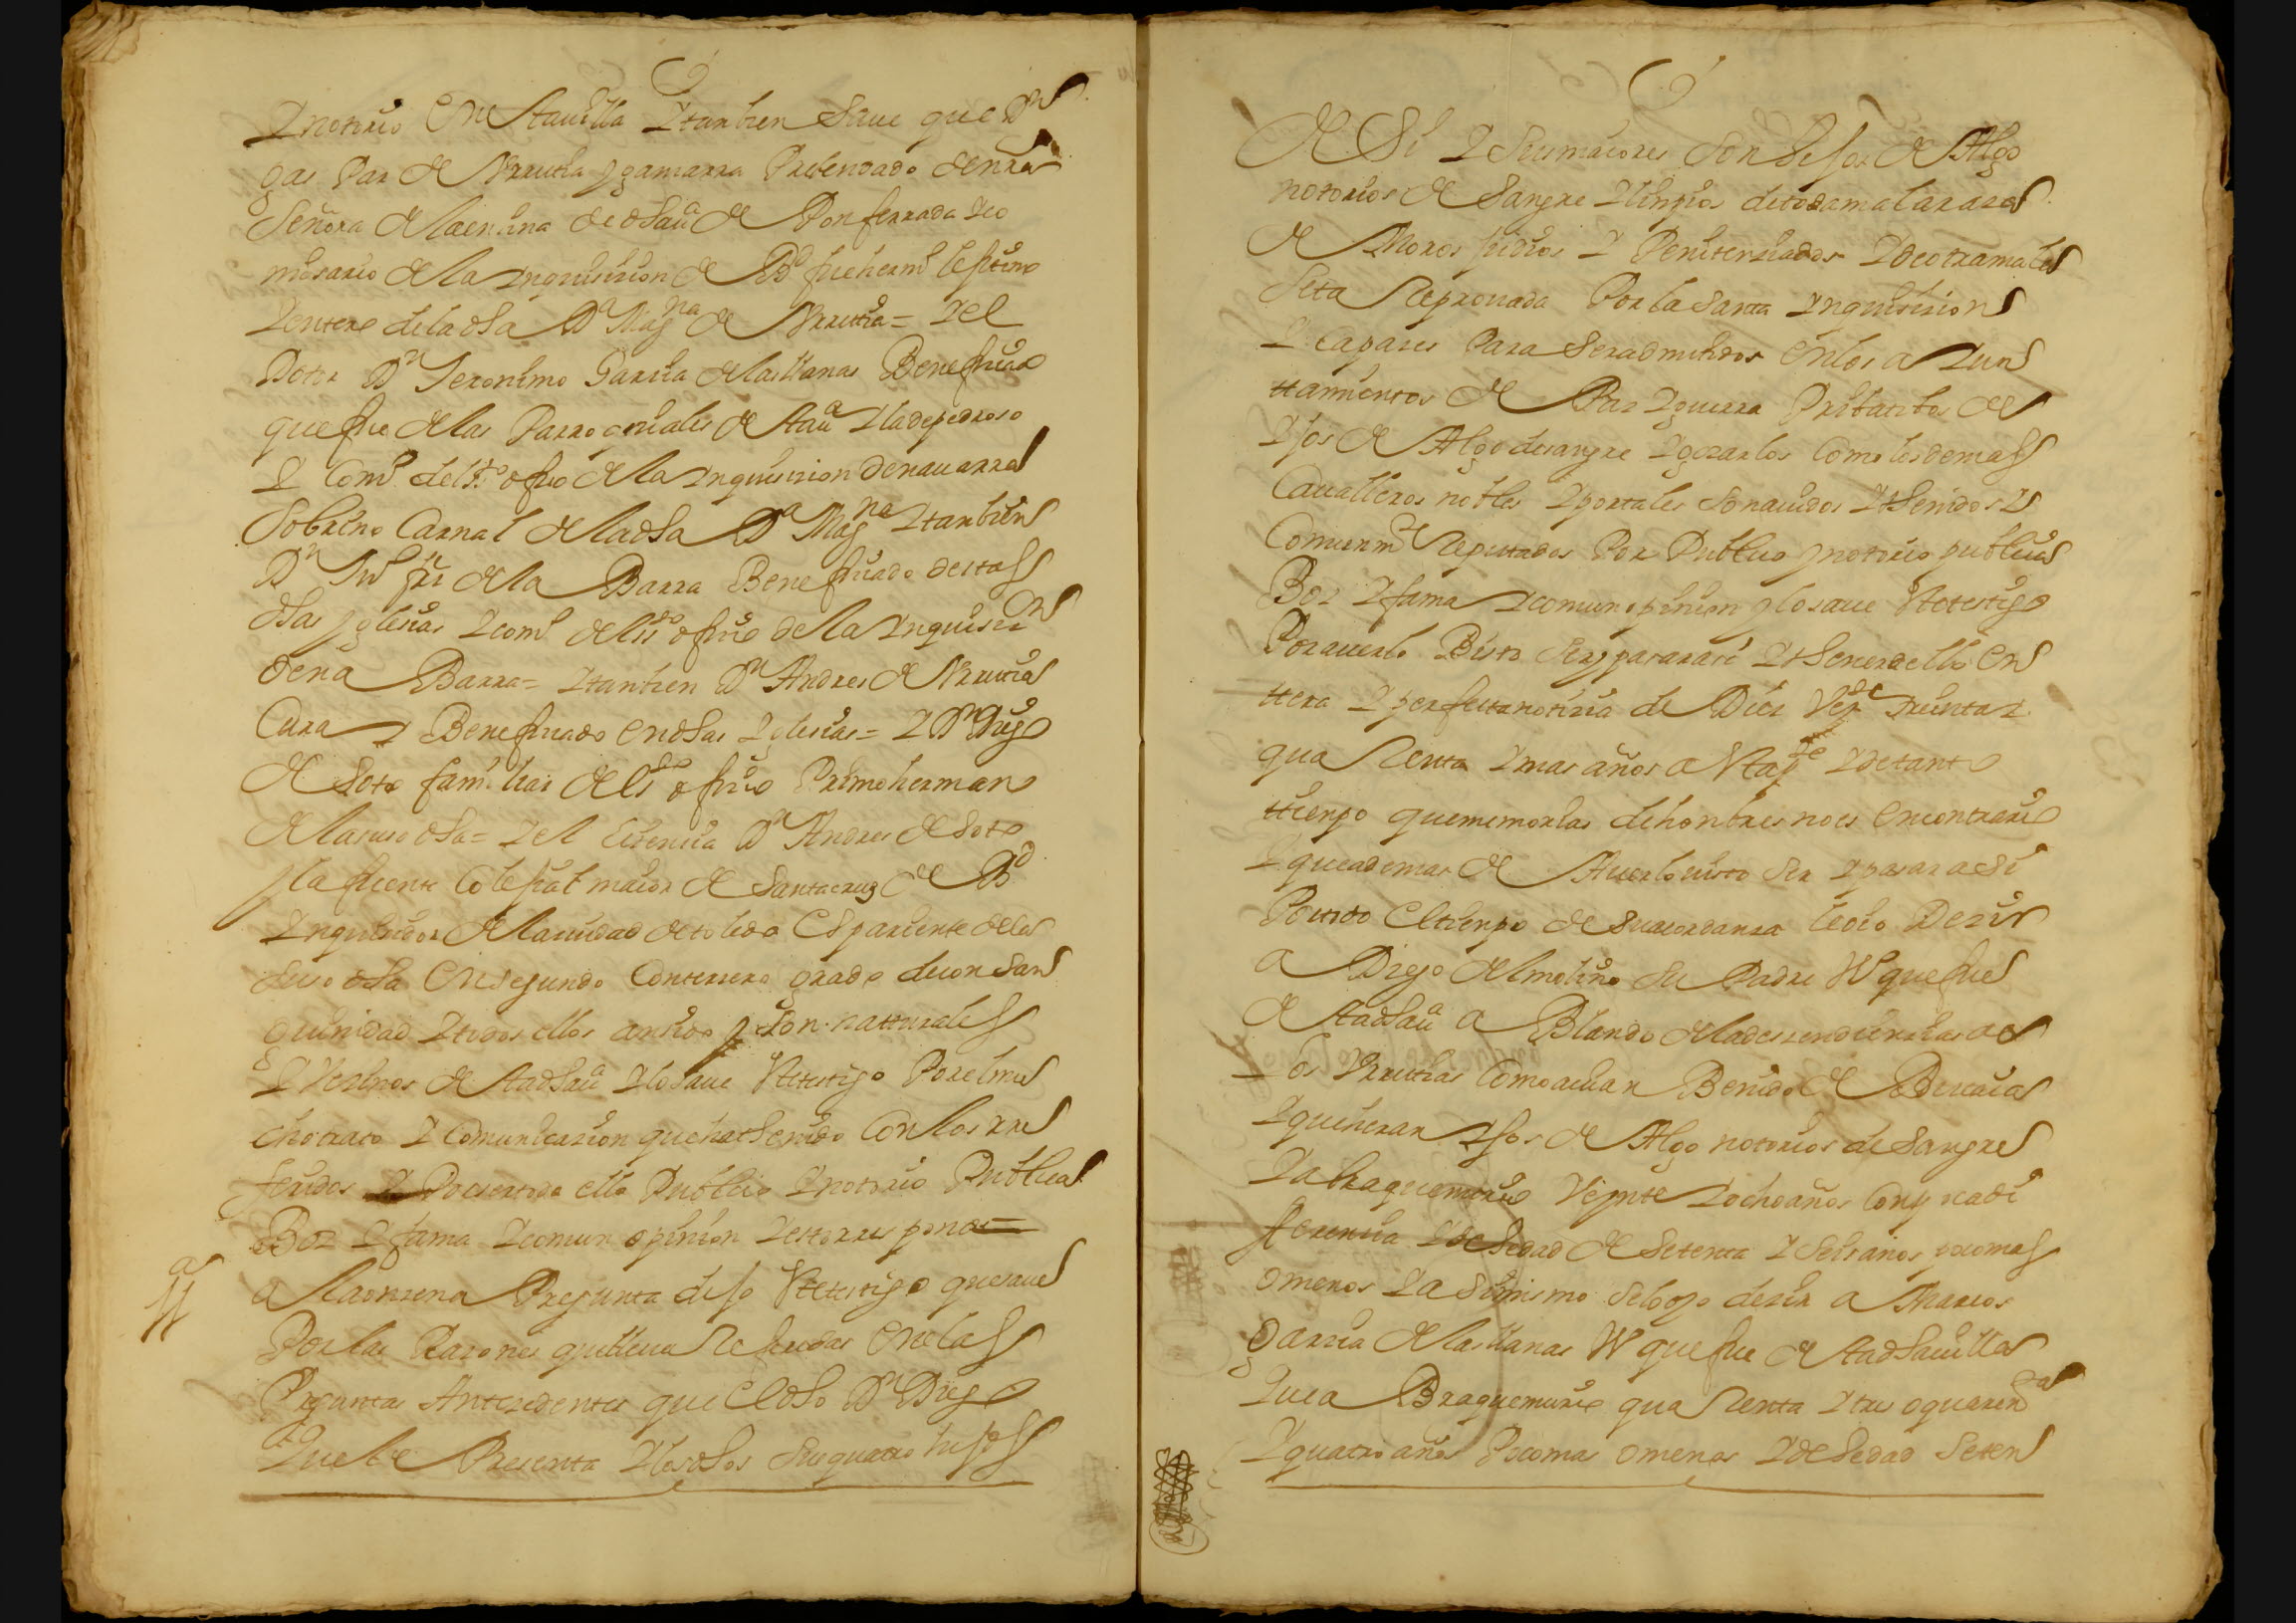 Y notorio en esta uilla Y tanbien saue que Dn
gas Par de Vrrutia y gamarra Prebendado de nra
señora de la encina de dha ua de Ponferrada Y co
misario de la Ynquisicion de Bd fue hermo lexitimo
Y entero de la dha Da Magna de Vrrutia = Y el
Dotor Dn Jeronimo Garcia de las llanas Beneficiado
que fue de las Parroquiales de esta ua Y la de pedroso
Y Como del sto oficio de la Ynquisicion de nauarra
Sobrino Carnal de la dha Da Magna Y tanbien
Dn Ju de la Barra Beneficiado de estas
dhas yglesias Y como del sto oficio de la Ynquisicion
de na Barra = Y tanbien Dn Andres de Vrrutia
Cura Y Beneficiado en dhas Yglesias = Y Dn Diego
de Soto familiar del sto oficio Primo hermano
de la suso dha = Y el licencia Dn Andres de Soto
y la fuente Colexial maior de Santa cruz de Bd
Ynquisidor de la ciudad de toledo es pariente de la
suso dha en segundo con tercero grado de con san
guinidad Y todos ellos an sido y son natturales
Y Vezinos de esta dha ua Y lo saue este testigo Por el mu
cho trato Y Comunicazion que ha thenido Con los rre
feridos Y Por ser todo ello Publico Y notorio Publica
Boz Y fama Y comun opinion Y esto rresponde =
11a
a la onzena Pregunta dijo este testigo que saue
Por las Razones que lleua Referidas en las
Preguntas Antezedentes que el dho Dn Diego
que le Presenta Y los dhos sus quatro hijos
de si Y sus maiores son hijos de Algo
notorios de Sangre Y linpios de toda mala raza
de Moros judios Y Penitenciados Y de otra mala
Seta Reprouada Por la Santa Ynquisicion
Y Capaces Para ser admitidos en los a Yun
ttamientos de Paz Y guerra Pribatibos de
Yjos de Algo de sangre Y gozarlos Como los demas
Caualleros nobles Y por tales son auidos Y thenidos Y
Comunmte Reputados Por Publico y notorio publica
Boz Y fama Y comun opinion y lo saue este testigo
Por auerlo Bisto ser y pasar asi Y thener de ello en
ttera Y perfetta noticia de Diez Veynte treinta Y
quarenta Y mas años a esta pte Y de tanto
ttienpo que memorias de honbres no es en contrario
Y que ademas de Auerlo uisto ser Y pasar asi
Por todo el tienpo de su acordanza le oio Dezir
a Diego del molino su Padre Vo que fue
de esta dha ua a Blando de la deszendiencia de
los Vrrutias Como auian Benido de Bizcaia
Y que heran Yjos de Algo notorios de Sangre
Y abra que murio Veynte Y ocho años Con poca di
ferencia Y de hedad de Setenta Y Seis años poco mas
o menos Y a si mismo se lo oyo dezir a Marcos
Garcia de las llanas Vo que fue de esta dha uilla
que a Bra que murio quarenta Y tres o quarenta
Y quatro años Poco mas o menos Y de hedad Seten